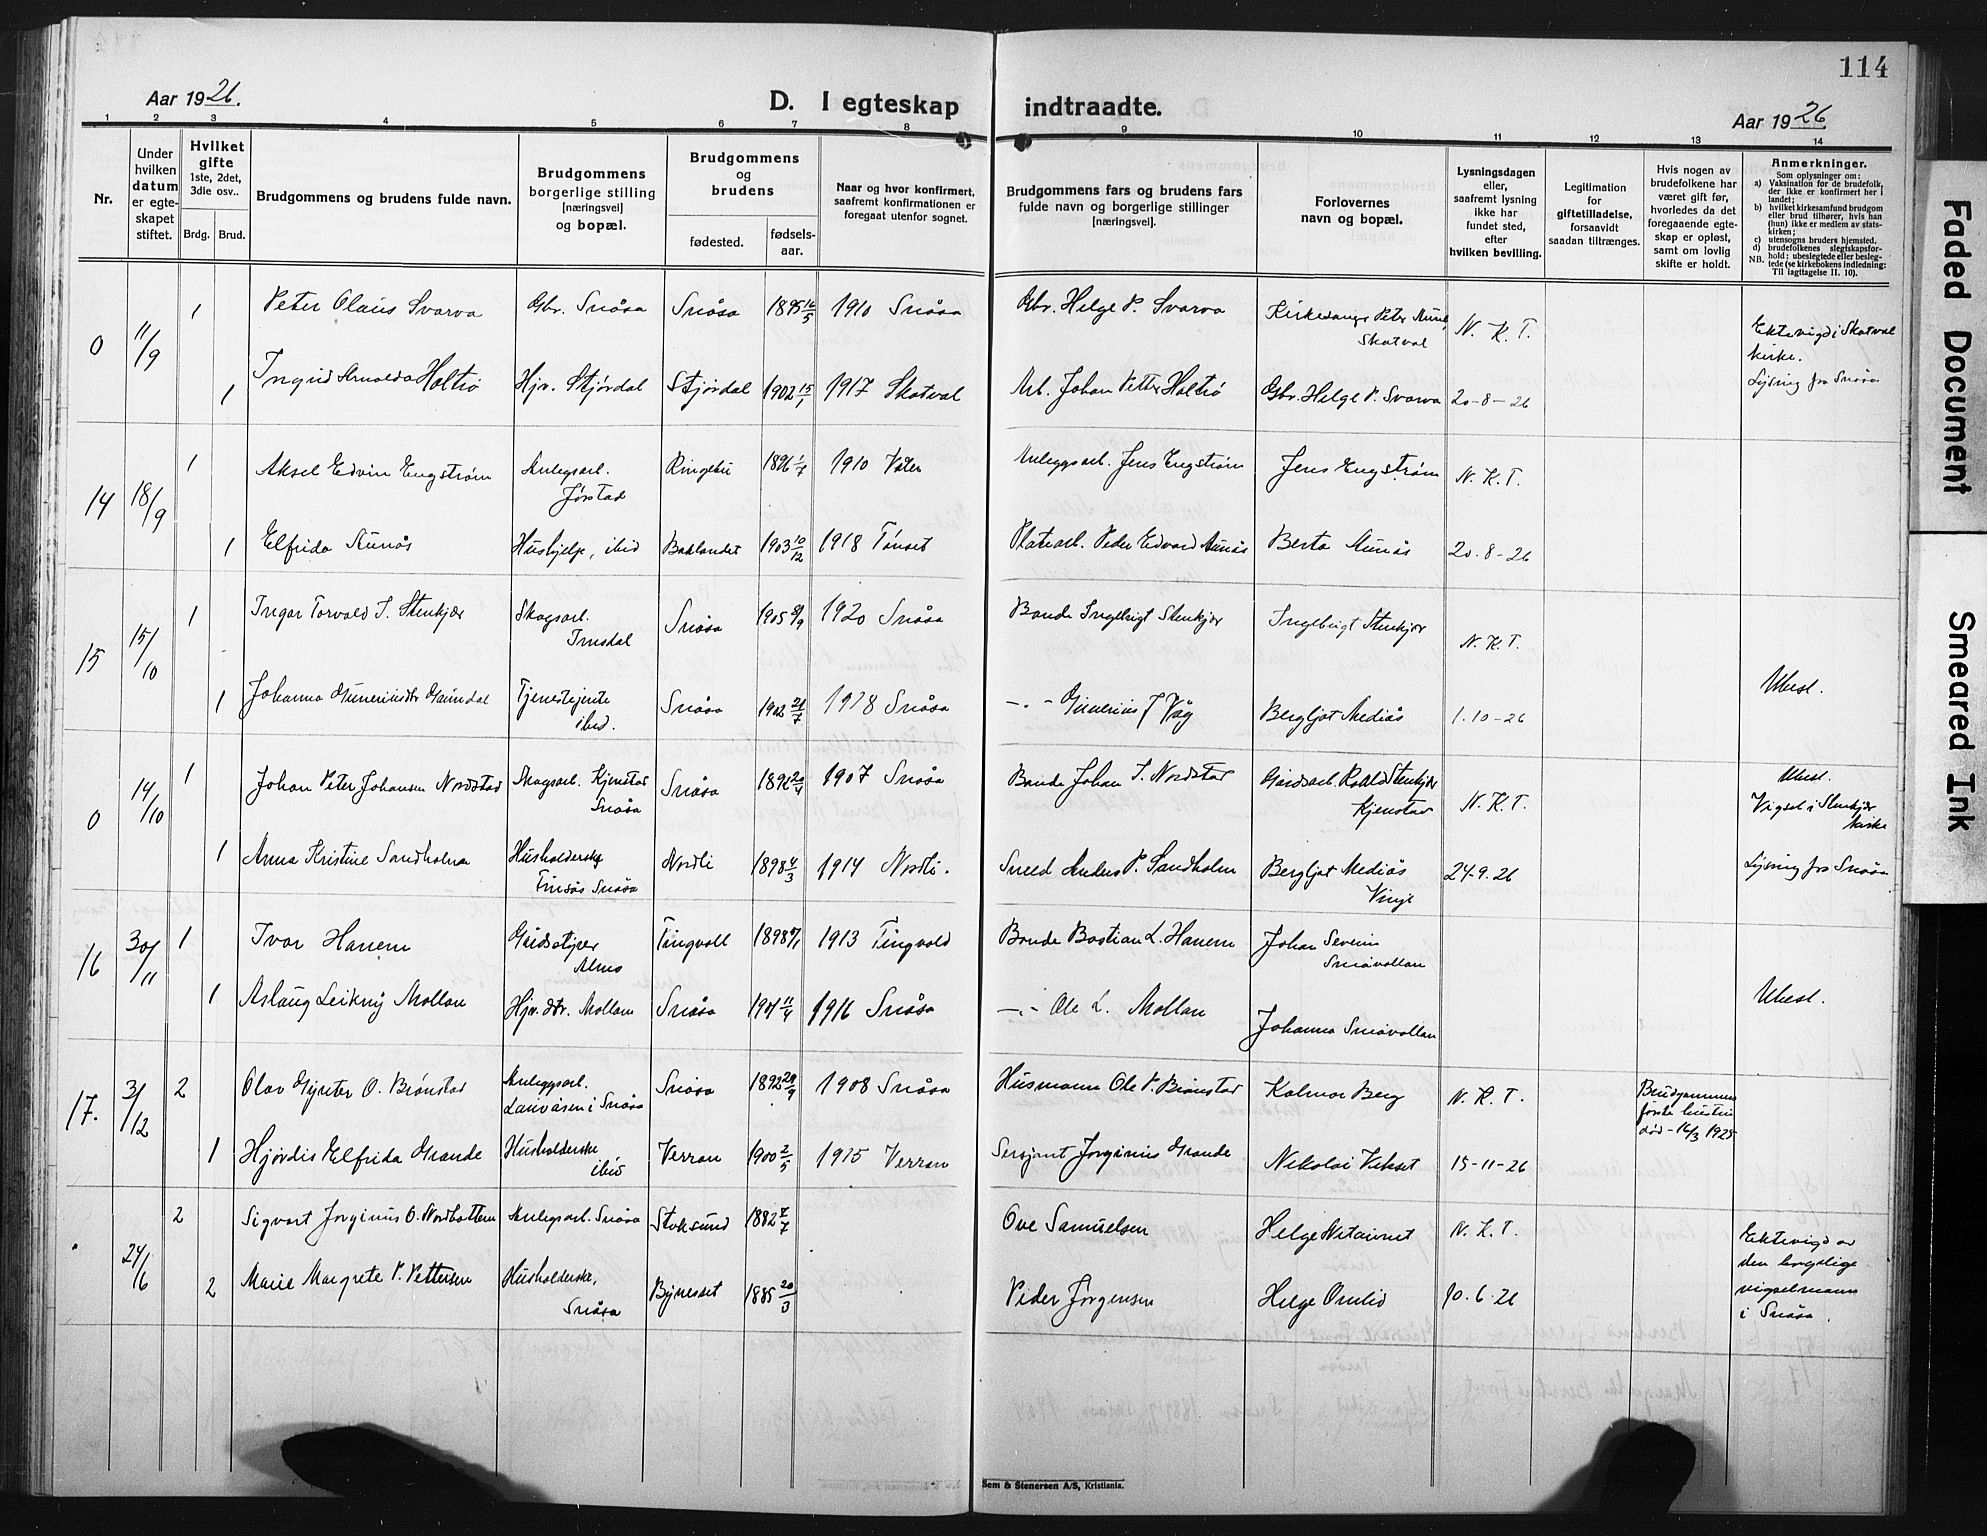 114
Aar 1926.
D. I egteskap indtraadte.
Aar 1926
1 2 3 4 5 6 7 8 9 10 11 12 13 14
Nr.
Under hvilken datum er egteskapet stiftet.
Hvilket gifte 1ste, 2det, 3die osv..
Brdg. Brud.
Brudgommens og brudens fulde navn.
Brudgommens borgerlige stilling [næringsvei] og bopæl.
Brudgommens og brudens
fødested.
fødsels-aar.
Naar og hvor konfirmert, saafremt konfirmationen er foregaat utenfor sognet.
Brudgommens fars og brudens fars fulde navn og borgerlige stillinger [næringsvei].
Forlovernes navn og bopæl.
Lysningsdagen eller, saafremt lysning ikke har fundet sted, efter hvilken bevilling.
Legitimation for giftetilladelse, forsaavidt saadan tiltrænges.
Hvis nogen av brudefolkene har været gift før, hvorledes da det foregaaende egteskap er opløst, samt om lovlig skifte er holdt.
Anmerkninger.
Som oplysninger om:
a) Vaksination for de brudefolk, der ikke er konfirmert her i landet;
b) hvilket kirkesamfund brudgom eller brud tilhører, hvis han (hun) ikke er medlem av statskirken;
c) utensogns bruders hjemsted.
d) brudefolkenes slegtskapsforhold: ubeslegtede eller beslegtede (se kirkebokens indledning:
NB. Til iagttagelse II. 10).
0 11/9 1 Peter Olaus Svarva Gbr. Snåsa Snåsa 1895 16/5 1910 Snåsa Gbr. Helge P. Svarva Kirkesanger Peter Aune, Skatval N. K. T. Ektevigd i Skatval kirke.
1 Ingrid Arnolda Holtiø Hjv. Stjørdal Stjørdal 1902 15/1 1917 Skatval Arb. Johan Petter Holtiø Gbr. Helge P. Svarva 20-8-26 Lysning fra Snåsa
14 18/9 1 Aksel Edvin Engstrøm Anlegsarb. Jørstad Ringebu 1896 1/7 1910 Anleggsarb. Jens Engstrøm Jens Engstrøm N. K. T.
1 Elfrida Aunås Hushjelp, ibid Baklandet 1903 10/12 1918 Tønset Platearb. Peder Edvard Aunås Berta Aunås 20-8-26
15 15/10 1 Ingar Torvald I. Stenkjær Skogsarb. Imsdal Snåsa 1905 1920 Snåsa Bonde Ingebrigt Stenkjær Ingebrigt Stenkjær N. K. T.
1 Johanna Gunneriusdtr Grundal Tjenestejente ibid. Snåsa 1902 1918 Snåsa -"- Gunerius J Våg Bergljot Mediås 1.10-26 Ubesl.
0 14/10 1 Johan Peter Johansen Nordstad Skogsarb. Kjenstad Snåsa Snåsa 1907 Snåsa Bonde Johan I. Nordstad Gårdsarb. Roald Stenkjær Kjenstad N. K. T. Ubesl. Vigsel i Stenkjær kirke
1 Anna Kristine Sandholm Husholderske Finsås Snåsa Nordli 1898 4/3 1914 Nordli. Smed Anders P. Sandholm Bergljot Mediås Vinje 24-9-26 Lysning fra Snåsa
16 30/11 1 Ivar Hanem Gårdsstyrer Almo Tingvoll 1898 1913 Tingvold Bonde Bastian L. Hanem Johan Severin Småvollan
1 Aslaug Leikny Mollan Hjv. dtr. Mollan Snåsa 1901 11/4 1916 Snåsa -"- Ole L. Mollan Johanna Småvollan Ubesl.
17. 3/12 2 Olav Gynter O. Brønstad Anleggsarb. i Snåsa Snåsa 1892 1908 Snåsa Husmann Ole P. Brønstad Kolmar Berg N. K. T. Brudgommens første hustru død - 16/3 1925
1 Hjørdis Elfrida Grande Husholderske ibid Verran 1900 2/5 1915 Verran Sersjant Jørginius Grande Nikolai Vekset 15-11-26
24/6 2 Sigvart Jørginus O. Nordbotten Anlegsarb. Snåsa Stoksund 1882 7/7 Ove Samuelsen Helge N. K. T. Ektevigd av den borgelige vigselmann i Snåsa.
2 Marie Margrete P. Pettersen Husholderske, Snåsa Bynesset 1885 20/3 Peder Jørgensen Helge Omlid 10.6.26
Sem & Stenersen A/S, Kristiania.
Faded Document
Smeared Ink